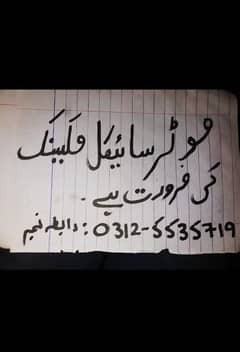 موٹر سائیکل مکینک
کی ضرورت ہے۔
رابطہ نمبر : 0312-5535719